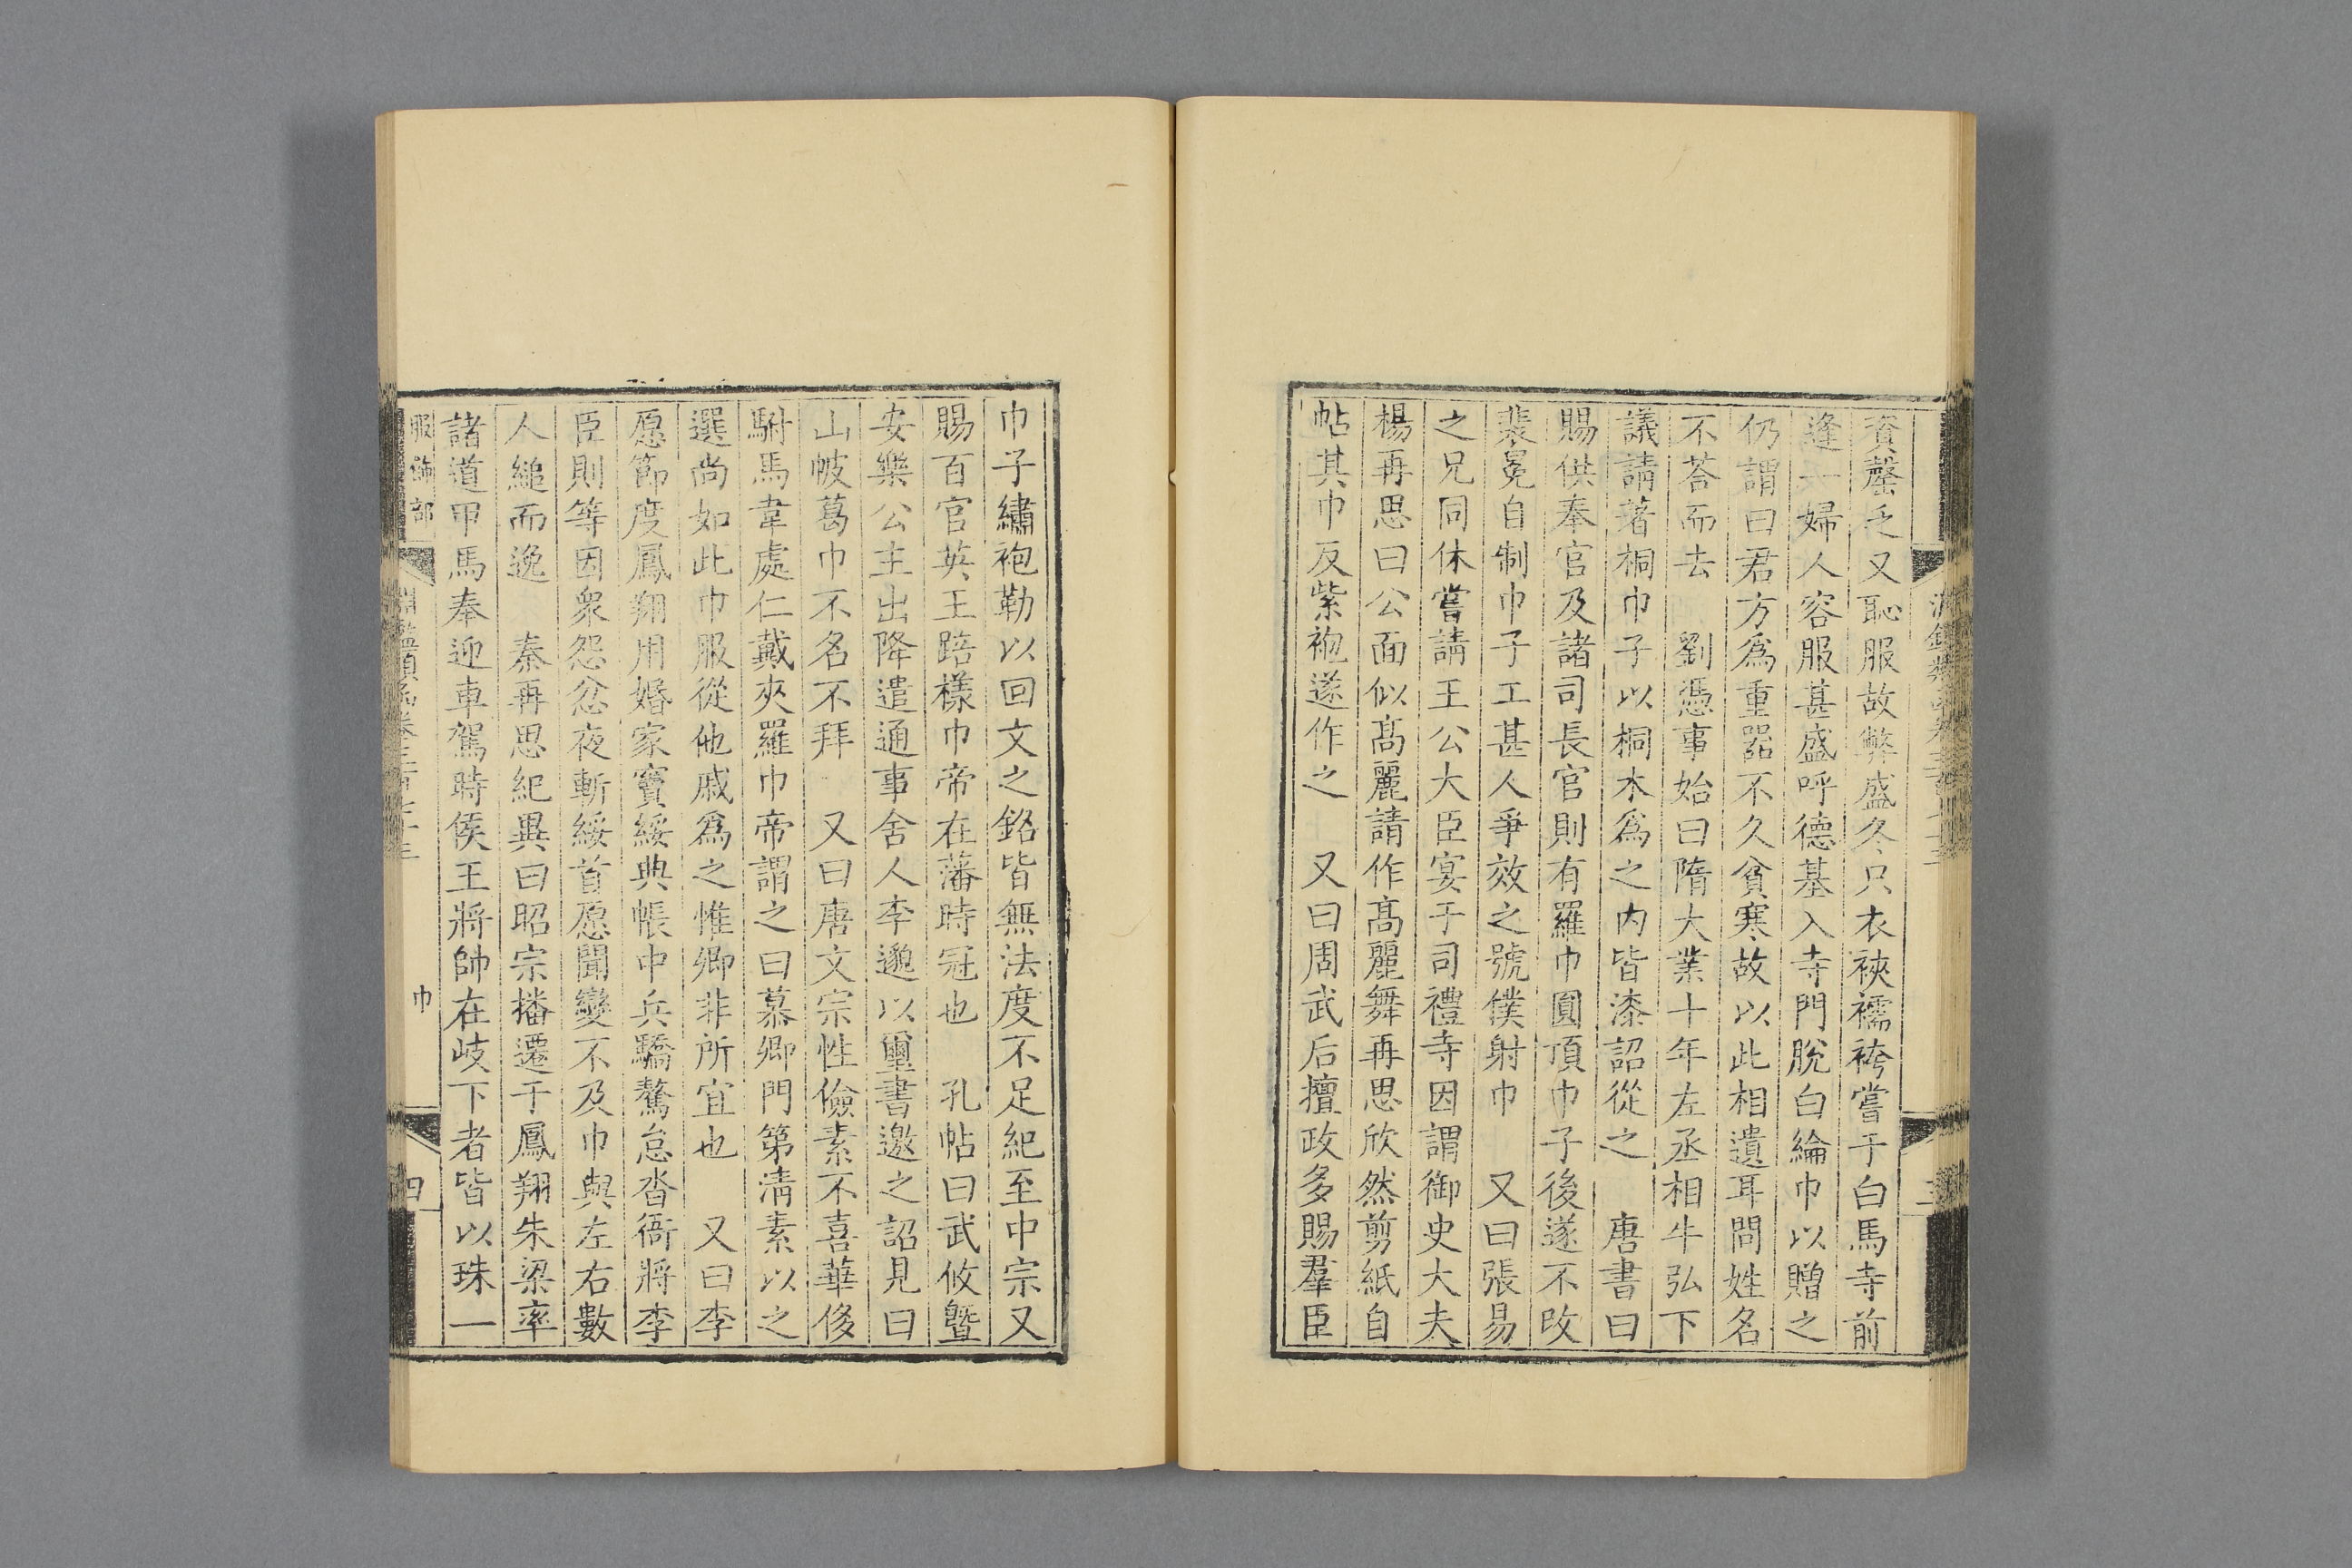 資罄乏又恥服故弊盛冬只衣裌襦袴嘗于白馬寺前
逢一婦人容服甚盛呼德基入寺門脫白綸巾以贈之
仍謂曰君方爲重器不久貧寒故以此相遺耳問姓名
不荅而去　劉馮事始曰隋大業十年左丞相牛弘下
議請著桐巾子以桐木爲之內皆漆詔從之　唐書曰
賜供奉官及諸司長官則有羅巾圓頂巾子後遂不改
裴冕自制巾子工甚人爭效之號僕射巾　又曰張易
之兄同休嘗請王公大臣宴于司禮寺因謂御史大夫
楊再思曰公面似髙麗請作髙麗舞再思欣然剪紙自
帖其巾反紫袍遂作之　又曰周武后擅政多賜羣臣
巾子繡袍勒以回文之銘皆無法度不足紀至中宗又
賜百官英王踣樣巾帝在藩時冠也　孔帖曰武攸曁
安樂公主出降遣通事舍人李邈以璽書邀之詔見曰
山帔葛巾不名不拜　又曰唐文宗性儉素不喜華侈
駙馬韋處仁戴夾羅巾帝謂之曰慕卿門第清素以之
選尚如此巾服從他戚爲之惟卿非所宜也　又曰李
愿節度鳳翔用婚家竇綏典帳中兵驕驁怠沓衙將李
臣則等因衆怨忿夜斬綏首愿聞變不及巾與左右數
人縋而逸　秦再思紀異曰昭宗播遷于鳳翔朱梁率
諸道甲馬奉迎車駕時侯王將帥在岐下者皆以珠一
服飾部　淵鑑類函卷三百七十三　巾　四